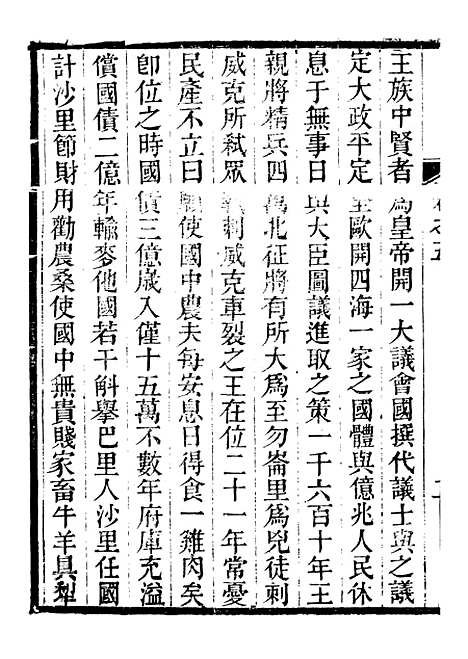 王族中賢者爲皇帝開一大議會國撰代議士與之議
定大政平定全歐開四海一家之國體與億兆人民休
息于無事日與大臣圖議進取之策一千六百十年王
親將精兵四萬北征將有所大爲至勿崙里爲兇徒刺
威克所弒眾執刺威克車裂之王在位二十一年常憂
民產不立曰願使國中農夫每安息日得食一雞肉矣
卽位之時國債三億歲入僅十五萬不數年府庫充溢
償國債二億年輸麥他國若干斛擧巴里人沙里任國
計沙里節財用勸農桑使國中無貴賤家畜牛羊具犁